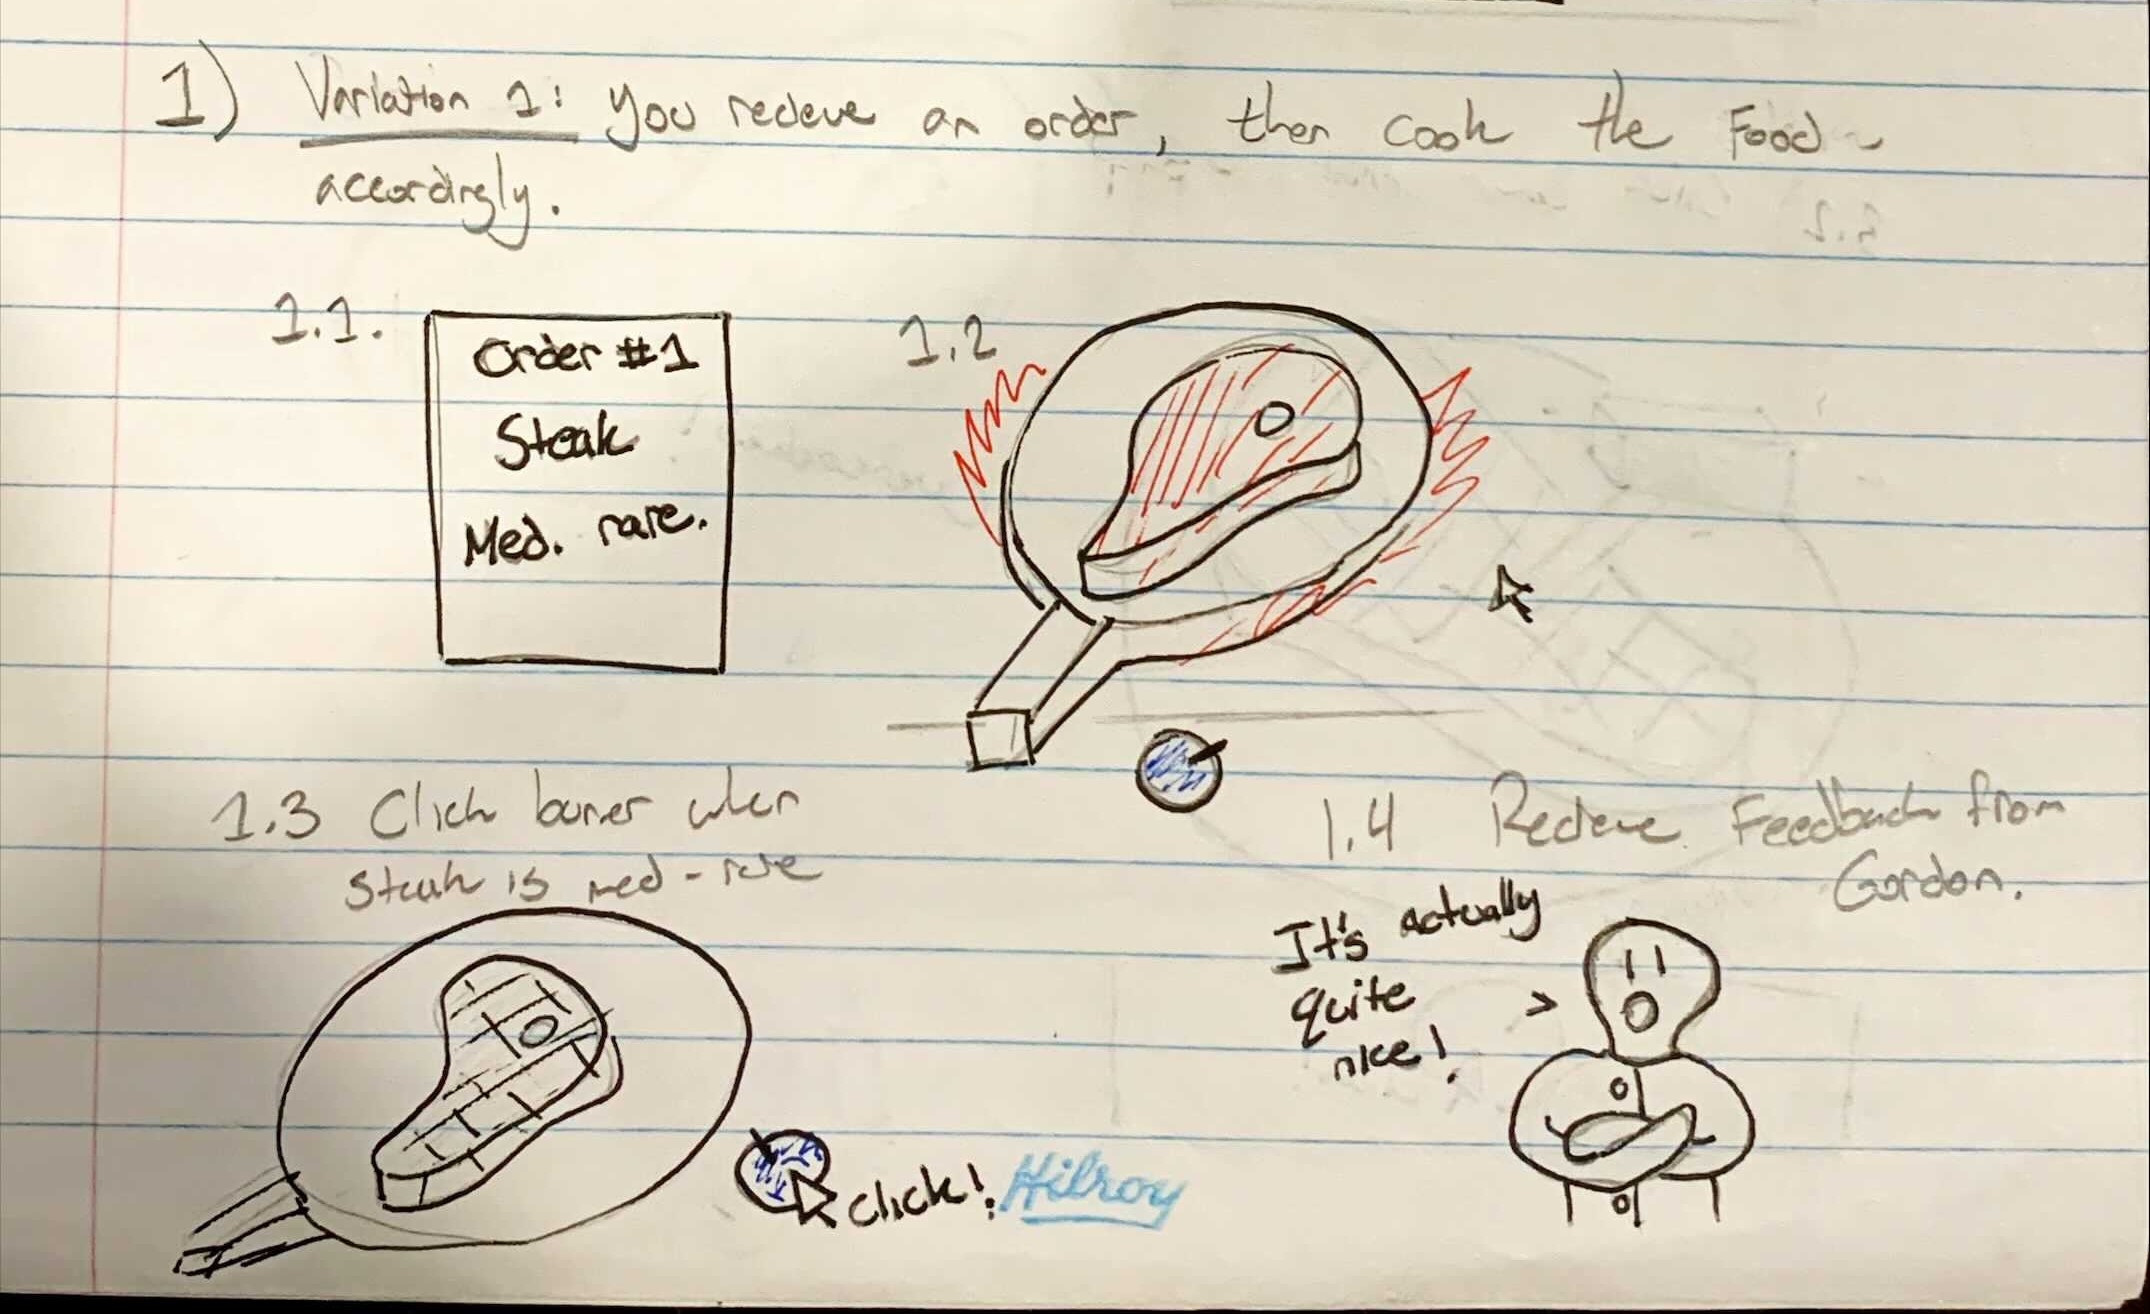 1) Variation 1: you recieve an order, then cook the Food
accordingly.
1.1.
Order #1
Steak
Med. rare.
1.2
1.3 Click burner when
steak is med-rare
click!
Hilroy
1.4 Recieve Feedback from
Gordon.
It's actually
quite
nice!